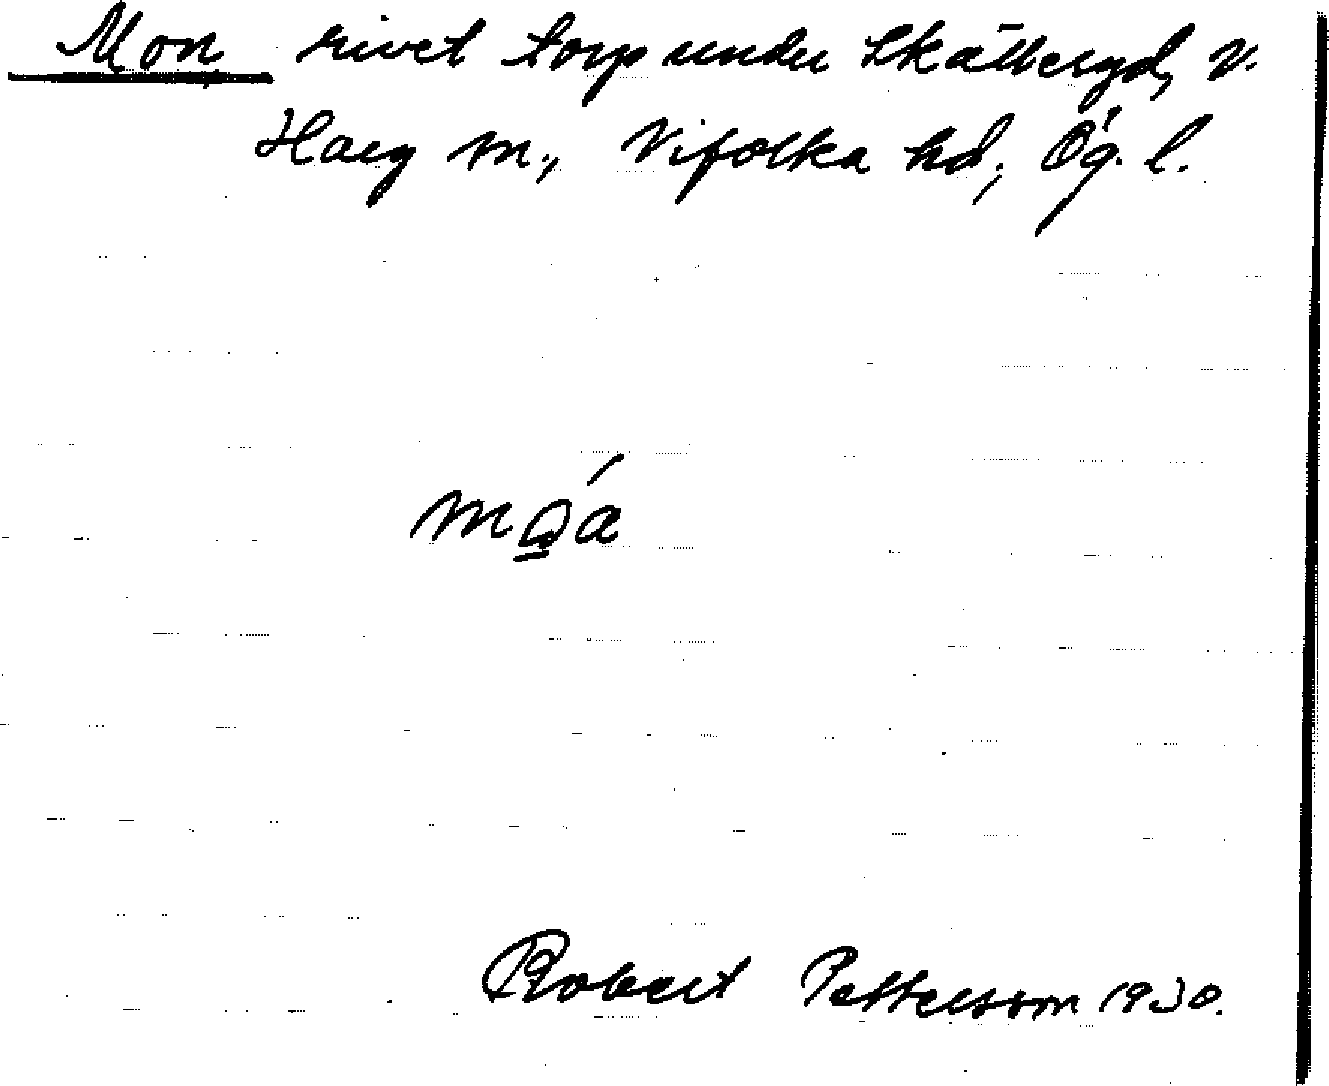 Mon rivet torp under Skättergd, V.
Harg sn., Vifolka hd., Ög. l.
mo̲á
Robert Pettersson 1930.